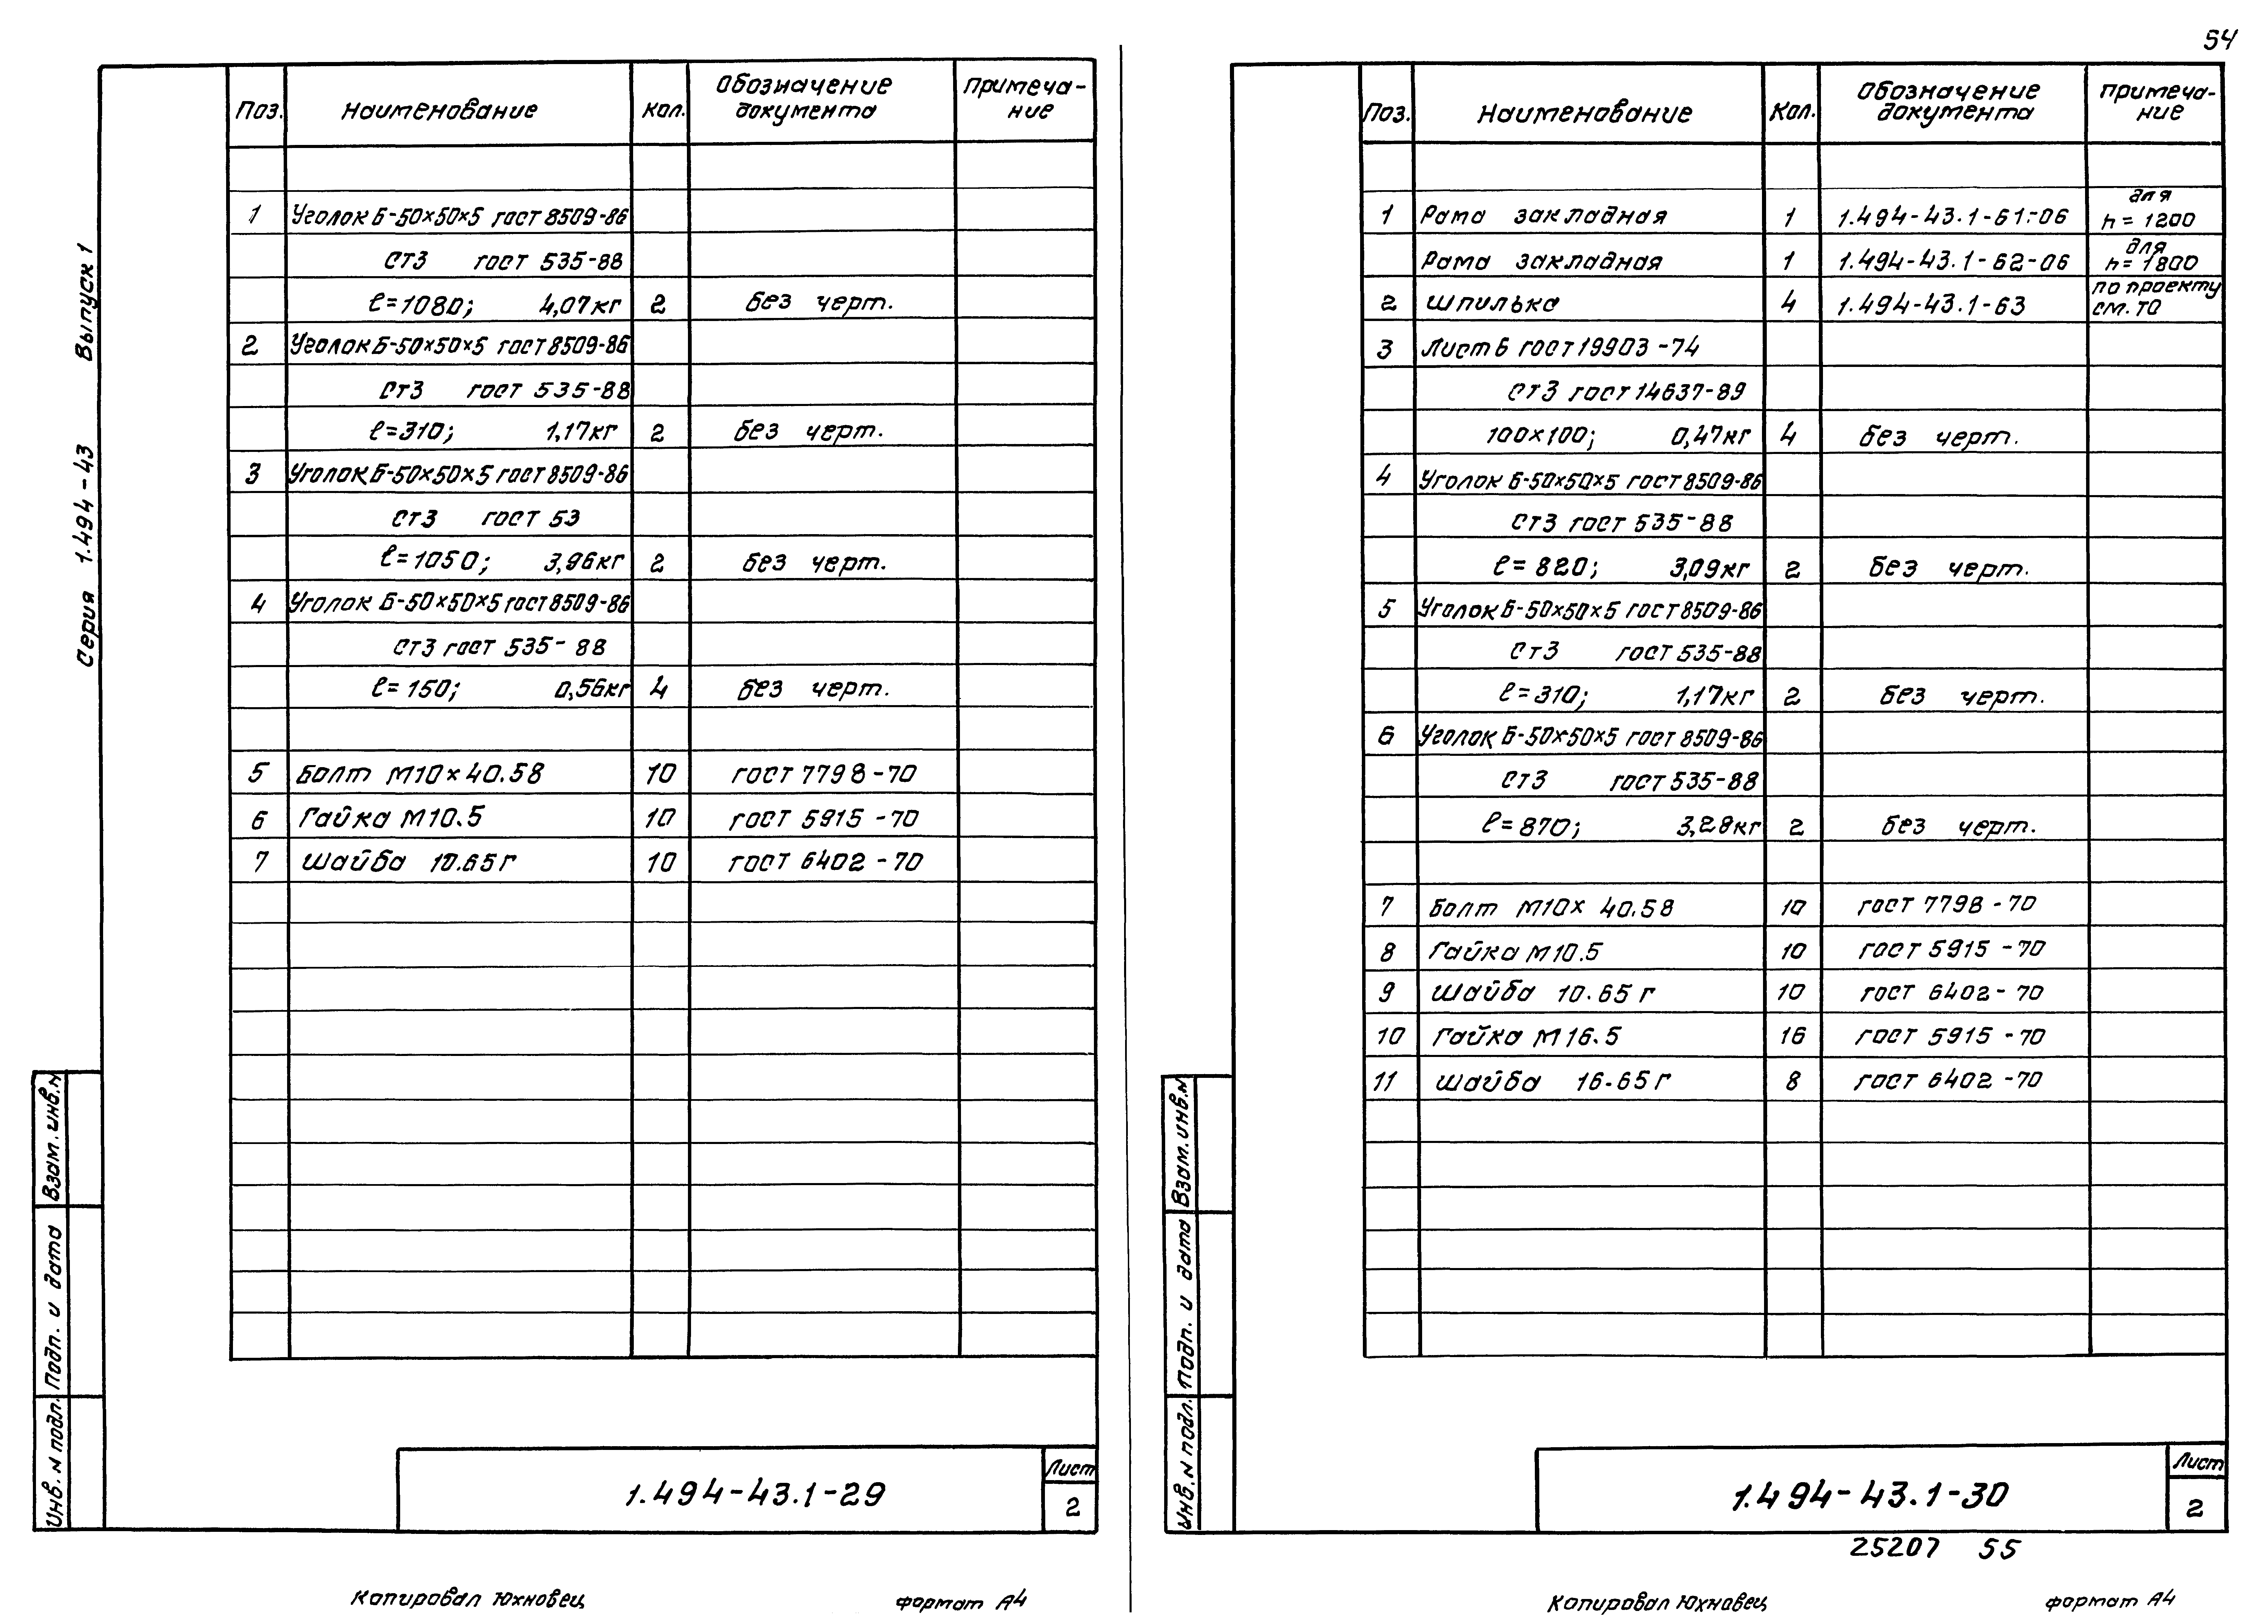 54
Серия 1.494-43 Выпуск 1
Поз. Наименование Кол. Обозначение документа Примечание
1 Уголок Б-50×50×5 ГОСТ 8509-86
Ст3 ГОСТ 535-88
ℓ=1080; 4,07кг 2 без черт.
2 Уголок Б-50×50×5 ГОСТ 8509-86
Ст3 ГОСТ 535-88
ℓ=310; 1,17кг 2 без черт.
3 Уголок Б-50×50×5 ГОСТ 8509-86
Ст3 ГОСТ 53
ℓ=1050; 3,96кг 2 без черт.
4 Уголок Б-50×50×5 ГОСТ 8509-86
Ст3 ГОСТ 535-88
ℓ=150; 0,56кг 4 без черт.
5 Болт М10×40.58 10 ГОСТ 7798-70
6 Гайка М10.5 10 ГОСТ 5915-70
7 Шайба 10.65Г 10 ГОСТ 6402-70
Инв. № подл. Подп. и дата Взам. инв. №
1.494-43.1-29
Лист
2
Копировал Юхновец формат А4
Поз. Наименование Кол. Обозначение документа Примечание
1 Рама закладная 1 1.494-43.1-61-06 для h=1200
Рама закладная 1 1.494-43.1-62-06 для h=1800
2 Шпилька 4 1.494-43.1-63 по проекту см. ТО
3 Лист 6 ГОСТ 19903-74
Ст3 ГОСТ 14637-89
100×100; 0,47кг 4 без черт.
4 Уголок Б-50×50×5 ГОСТ 8509-86
Ст3 ГОСТ 535-88
ℓ=820; 3,09кг 2 без черт.
5 Уголок Б-50×50×5 ГОСТ 8509-86
Ст3 ГОСТ 535-88
ℓ=310; 1,17кг 2 без черт.
6 Уголок Б-50×50×5 ГОСТ 8509-86
Ст3 ГОСТ 535-88
ℓ=870; 3,28кг 2 без черт.
7 Болт М10× 40.58 10 ГОСТ 7798-70
8 Гайка М10.5 10 ГОСТ 5915-70
9 Шайба 10.65Г 10 ГОСТ 6402-70
10 Гайка М16.5 16 ГОСТ 5915-70
11 Шайба 16.65Г 8 ГОСТ 6402-70
Инв. № подл. Подп. и дата Взам. инв. №
1.494-43.1-30
Лист
2
25207 55
Копировал Юхновец формат А4